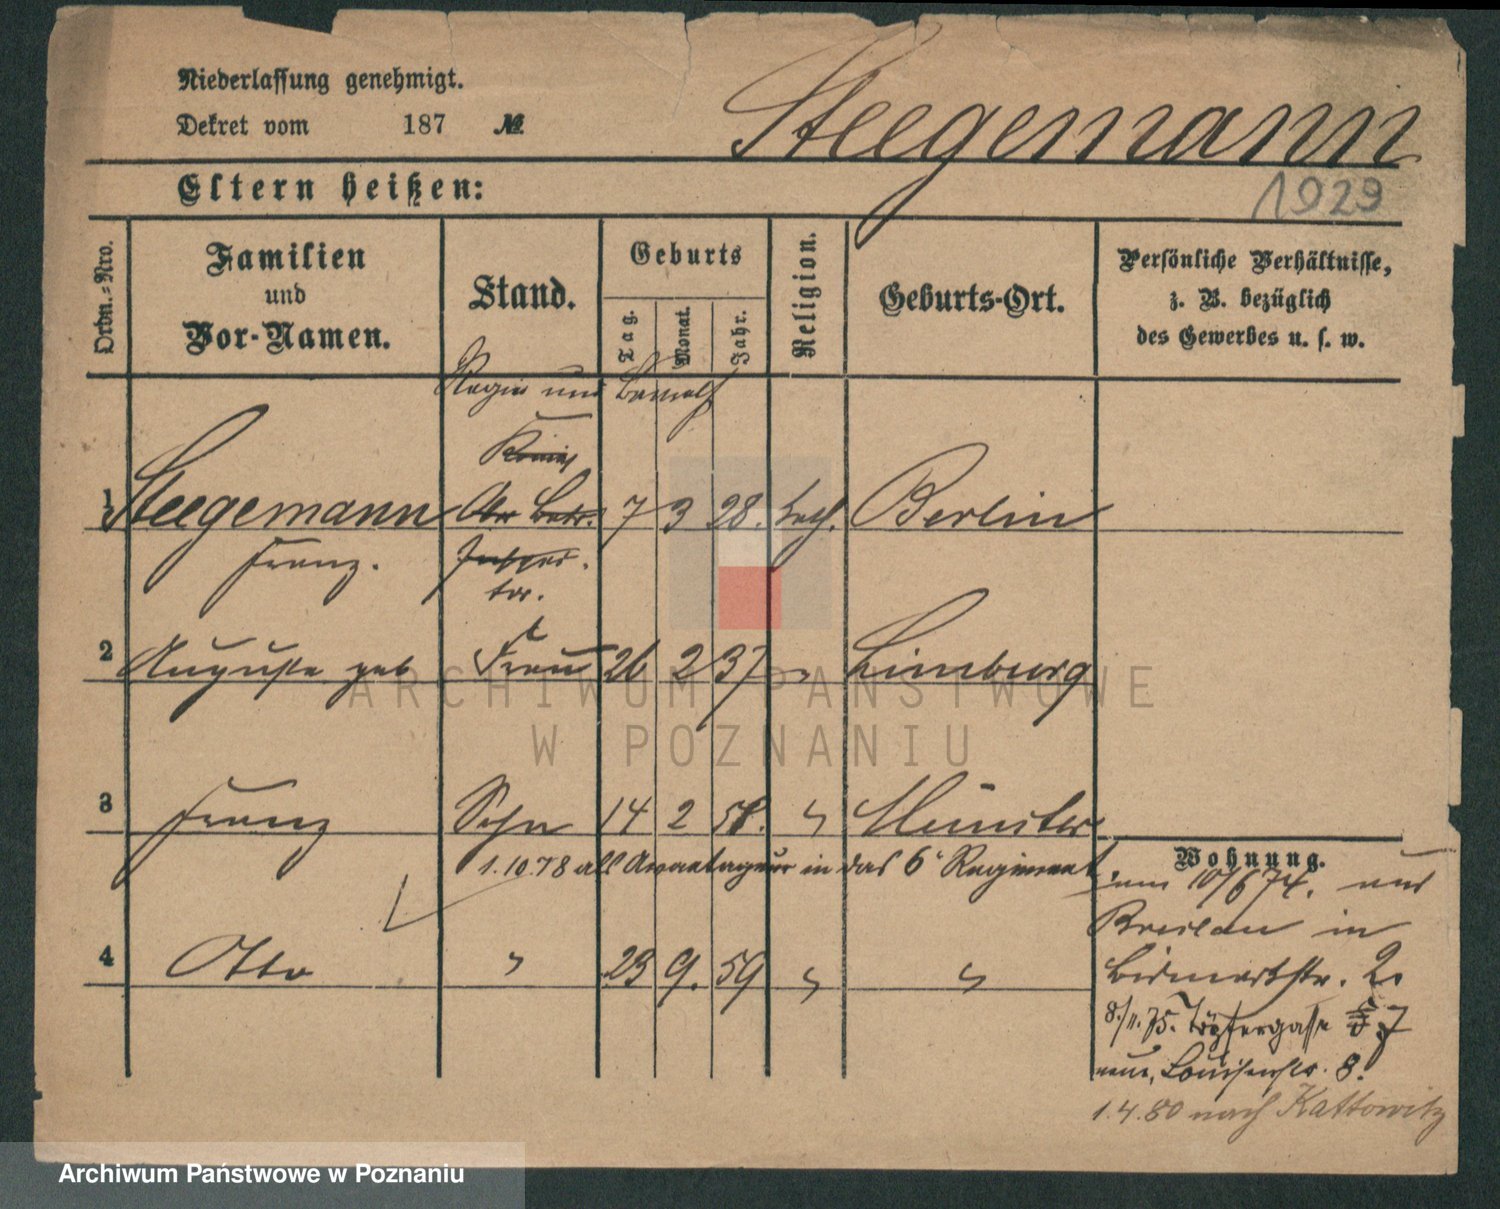 Niederlassung genehmigt.
Dekret vom 187 №
Steegemann
1929
Eltern heißen:
Ordn.-Nro.
Familien und Vor-Namen.
Stand.
Geburts
Tag.
Monat.
Jahr.
Religion.
Geburts-Ort.
Persönliche Verhältnisse,
z. B. bezüglich
des Gewerbes u. s. w.
1 Steegemann 7 3 28. kath. Berlin
Franz.
2 Auguste geb Frau 26 2 37 " Limburg
3 Franz Sohn 14 2 58. " Münster
1.10.78 als Avantageur in das 6 Regiment
Wohnung.
10/6 74. aus
Breslau in
Bismarkstr. 2.
4 Otto " 23 9. 59 " "
8./11.75. Töpfergasse 7
neue, Louisenstr. 8.
1.4.80 nach Kattowitz
ARCHIWUM PAŃSTWOWE
W POZNANIU
Archiwum Państwowe w Poznaniu